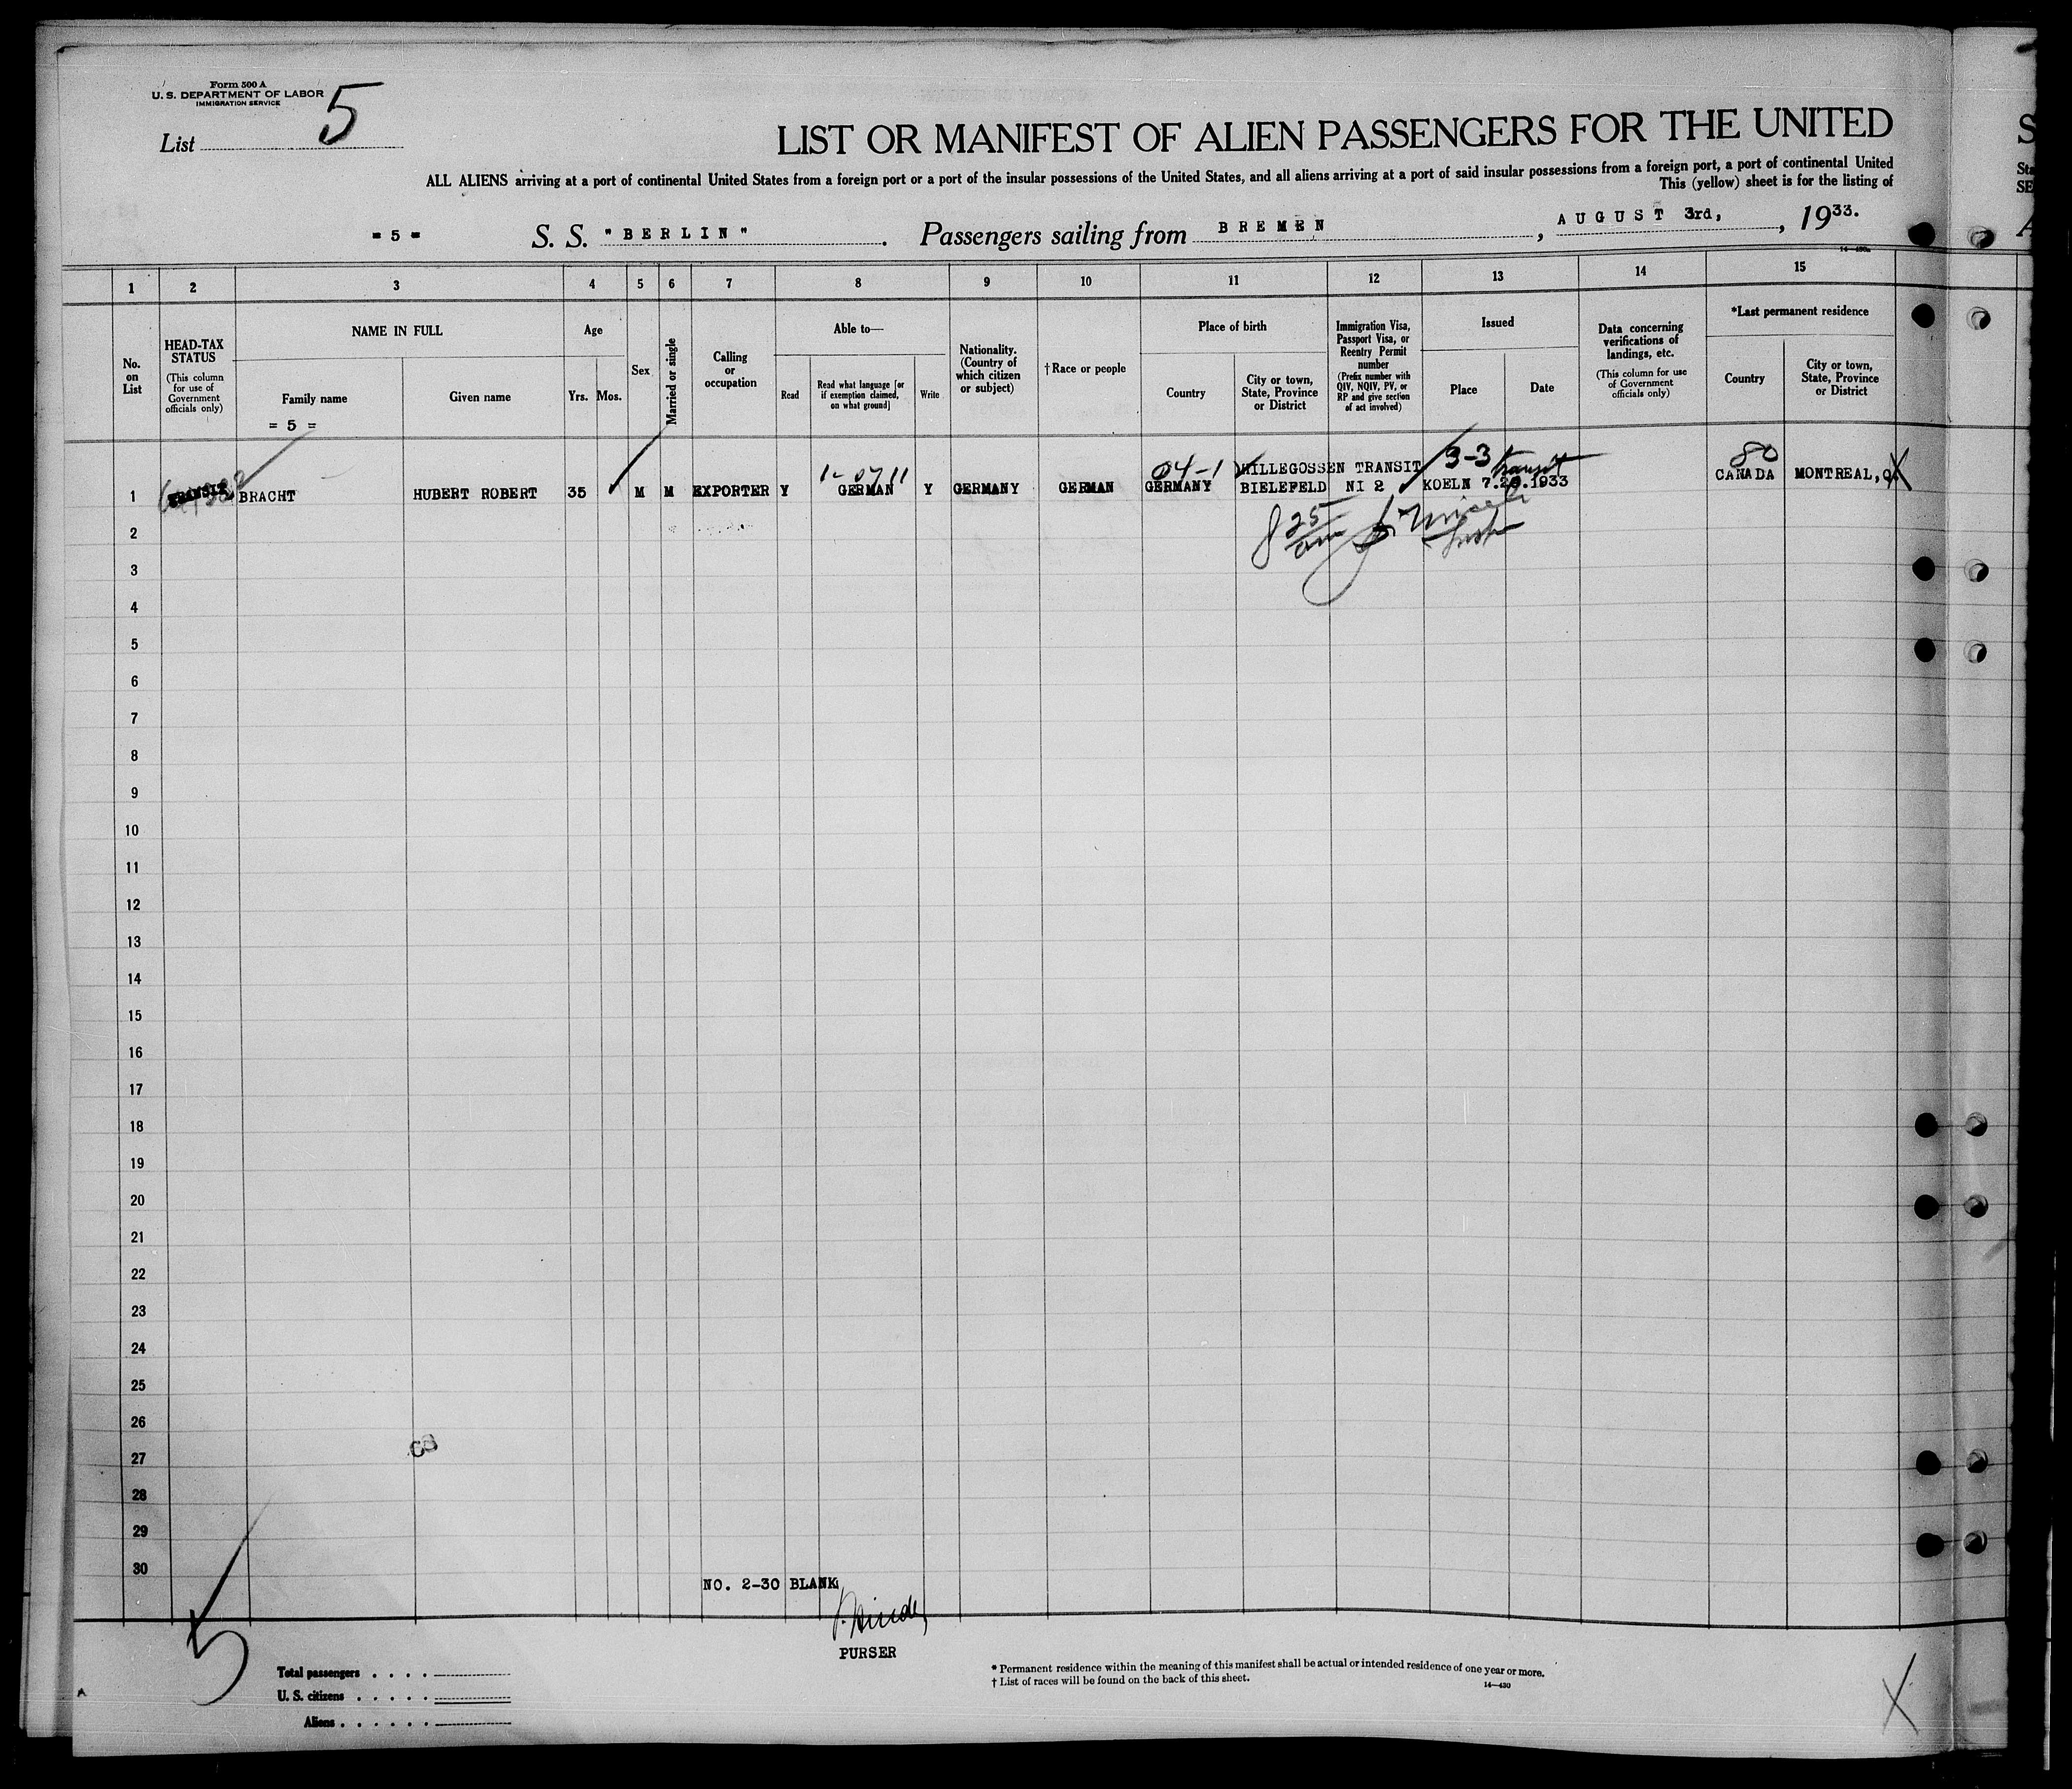 Form 500 A
U. S. DEPARTMENT OF LABOR
IMMIGRATION SERVICE
List 5
LIST OR MANIFEST OF ALIEN PASSENGERS FOR THE UNITED
ALL ALIENS arriving at a port of continental United States from a foreign port or a port of the insular possessions of the United States, and all aliens arriving at a port of said insular possessions from a foreign port, a port of continental United
This (yellow) sheet is for the listing of
= 5 = S. S. "BERLIN". Passengers sailing from BREMEN, AUGUST 3rd, 1933.
1 2 3 4 5 6 7 8 9 10 11 12 13 14 15
No. on List
HEAD-TAX STATUS
(This column for use of Government officials only)
NAME IN FULL
Family name
Given name
= 5 =
Age
Yrs. Mos.
Sex
Married or single
Calling or occupation
Able to—
Read
Read what language [or if exemption claimed, on what ground]
Write
Nationality. (Country of which citizen or subject)
† Race or people
Place of birth
Country
City or town, State, Province or District
Immigration Visa, Passport Visa, or Reentry Permit number
(Prefix number with QIV, NQIV, PV, or RP and give section of act involved)
Issued
Place
Date
Data concerning verifications of landings, etc.
(This column for use of Government officials only)
*Last permanent residence
Country
City or town, State, Province or District
04-1 3-3 transit 80
WILLEGOSSEN TRANSIT
1 TRANSIT BRACHT HUBERT ROBERT 35 M M EXPORTER Y GERMAN Y GERMANY GERMAN GERMANY BIELEFELD NI 2 KOELN 7.20.1933 CANADA MONTREAL,
8 25 am
2
3
4
5
6
7
8
9
10
11
12
13
14
15
16
17
18
19
20
21
22
23
24
25
26
27
28
29
30
NO. 2-30 BLANK
PURSER
5
Total passengers
U. S. citizens
Aliens
* Permanent residence within the meaning of this manifest shall be actual or intended residence of one year or more.
† List of races will be found on the back of this sheet.
14—430
X